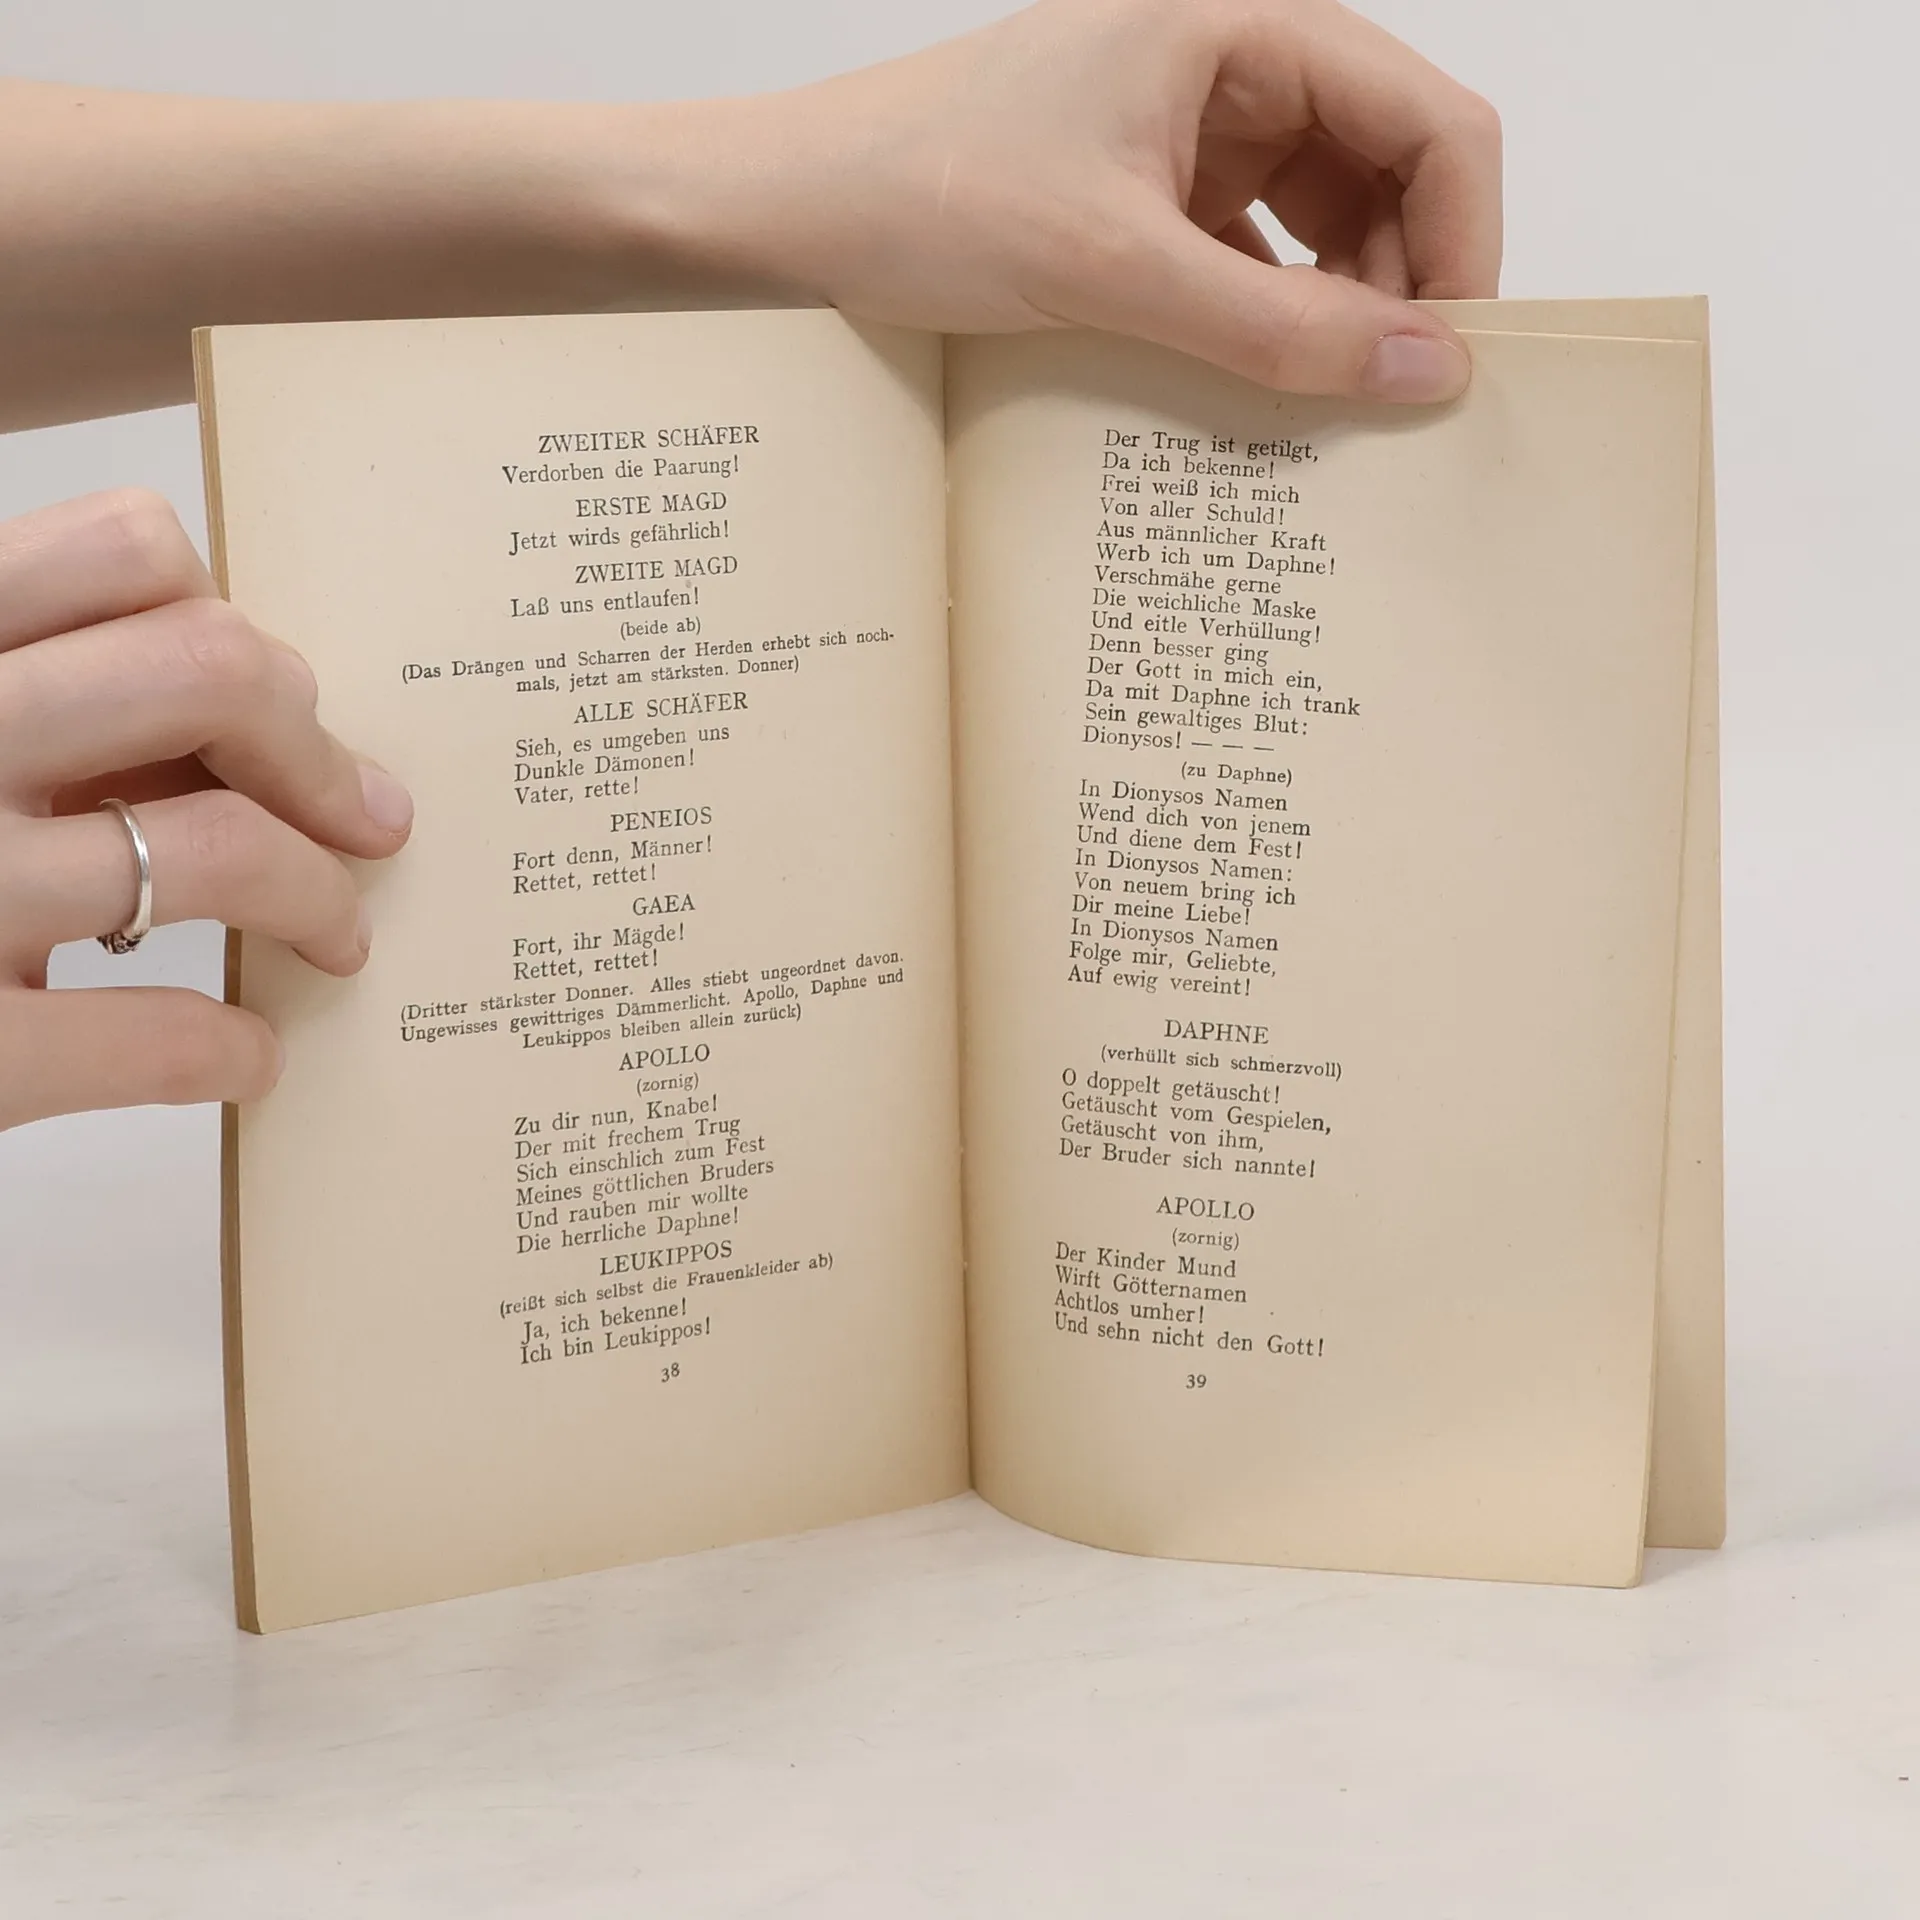 ZWEITER SCHÄFER
Verdorben die Paarung!
ERSTE MAGD
Jetzt wirds gefährlich!
ZWEITE MAGD
Laß uns entlaufen!
(beide ab)
(Das Drängen und Scharren der Herden erhebt sich noch-
mals, jetzt am stärksten. Donner)
ALLE SCHÄFER
Sieh, es umgeben uns
Dunkle Dämonen!
Vater, rette!
PENEIOS
Fort denn, Männer!
Rettet, rettet!
GAEA
Fort, ihr Mägde!
Rettet, rettet!
(Dritter stärkster Donner. Alles stiebt ungeordnet davon.
Ungewisses gewittriges Dämmerlicht. Apollo, Daphne und
Leukippos bleiben allein zurück)
APOLLO
(zornig)
Zu dir nun, Knabe!
Der mit frechem Trug
Sich einschlich zum Fest
Meines göttlichen Bruders
Und rauben mir wollte
Die herrliche Daphne!
LEUKIPPOS
(reißt sich selbst die Frauenkleider ab)
Ja, ich bekenne!
Ich bin Leukippos!
38
Der Trug ist getilgt,
Da ich bekenne!
Frei weiß ich mich
Von aller Schuld!
Aus männlicher Kraft
Werb ich um Daphne!
Verschmähe gerne
Die weichliche Maske
Und eitle Verhüllung!
Denn besser ging
Der Gott in mich ein,
Da mit Daphne ich trank
Sein gewaltiges Blut:
Dionysos! — — —
(zu Daphne)
In Dionysos Namen
Wend dich von jenem
Und diene dem Fest!
In Dionysos Namen:
Von neuem bring ich
Dir meine Liebe!
In Dionysos Namen
Folge mir, Geliebte,
Auf ewig vereint!
DAPHNE
(verhüllt sich schmerzvoll)
O doppelt getäuscht!
Getäuscht vom Gespielen,
Getäuscht von ihm,
Der Bruder sich nannte!
APOLLO
(zornig)
Der Kinder Mund
Wirft Götternamen
Achtlos umher!
Und sehn nicht den Gott!
39